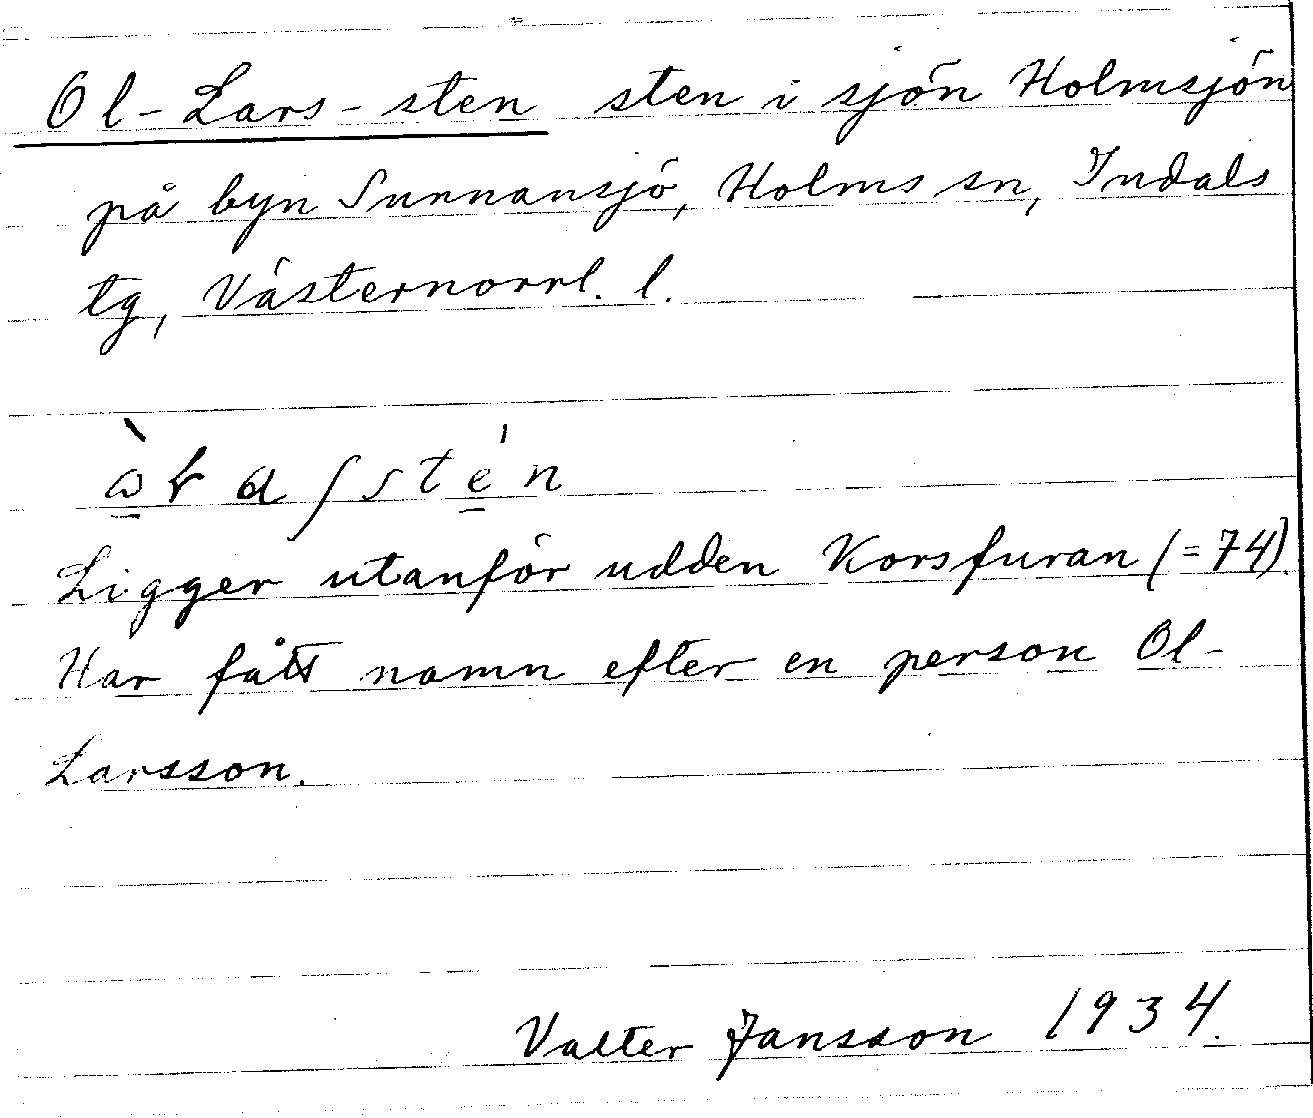 Ol-Lars-sten sten i sjön Holmsjön
på byn Sunnansjö, Holms sn, Indals
tg, Västernorrl. l.
Ligger utanför udden Korsfuran (=74).
Har fått namn efter en person Ol-
Larsson.
Valter Jansson 1934.